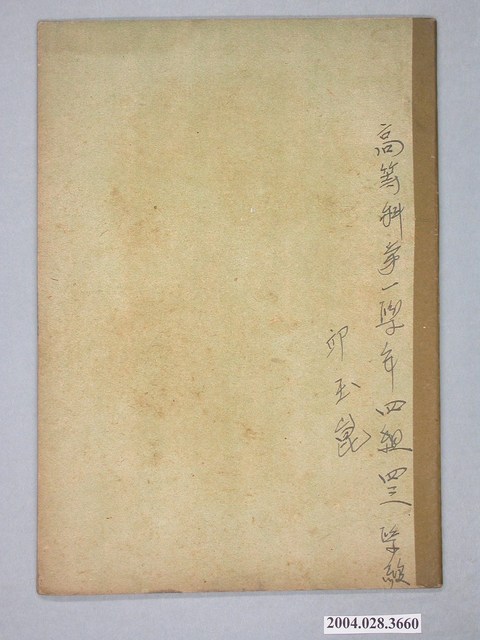 高等科第一學年四組四三學級
邱玉崑
2004.028.3660